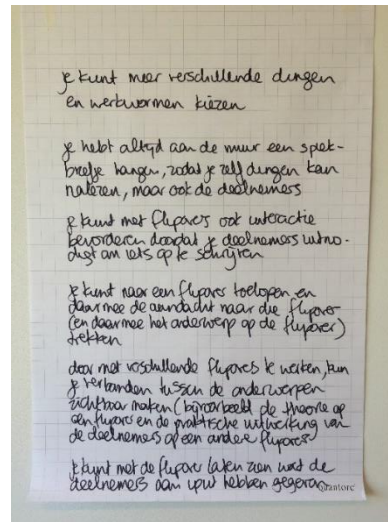 je kunt meer verschillende dingen
en werkvormen kiezen
je hebt altijd aan de muur een spiek-
briefje hangen, zodat je zelf dingen kan
nalezen, maar ook de deelnemers
je kunt met flipovers ook interactie
bevorderen doordat je deelnemers uitno-
digt om iets op te schrijven
je kunt naar een flipover toelopen en
daarmee de aandacht naar die flipover
(en daarmee het onderwerp op de flipover)
trekken
door met verschillende flipovers te werken, kun
je verbanden tussen de onderwerpen
zichtbaar maken (bijvoorbeeld de theorie op
een flipover en de praktische uitwerking van
de deelnemers op een andere flipover)
je kunt met de flipover laten zien wat de
deelnemers aan input hebben gegeven